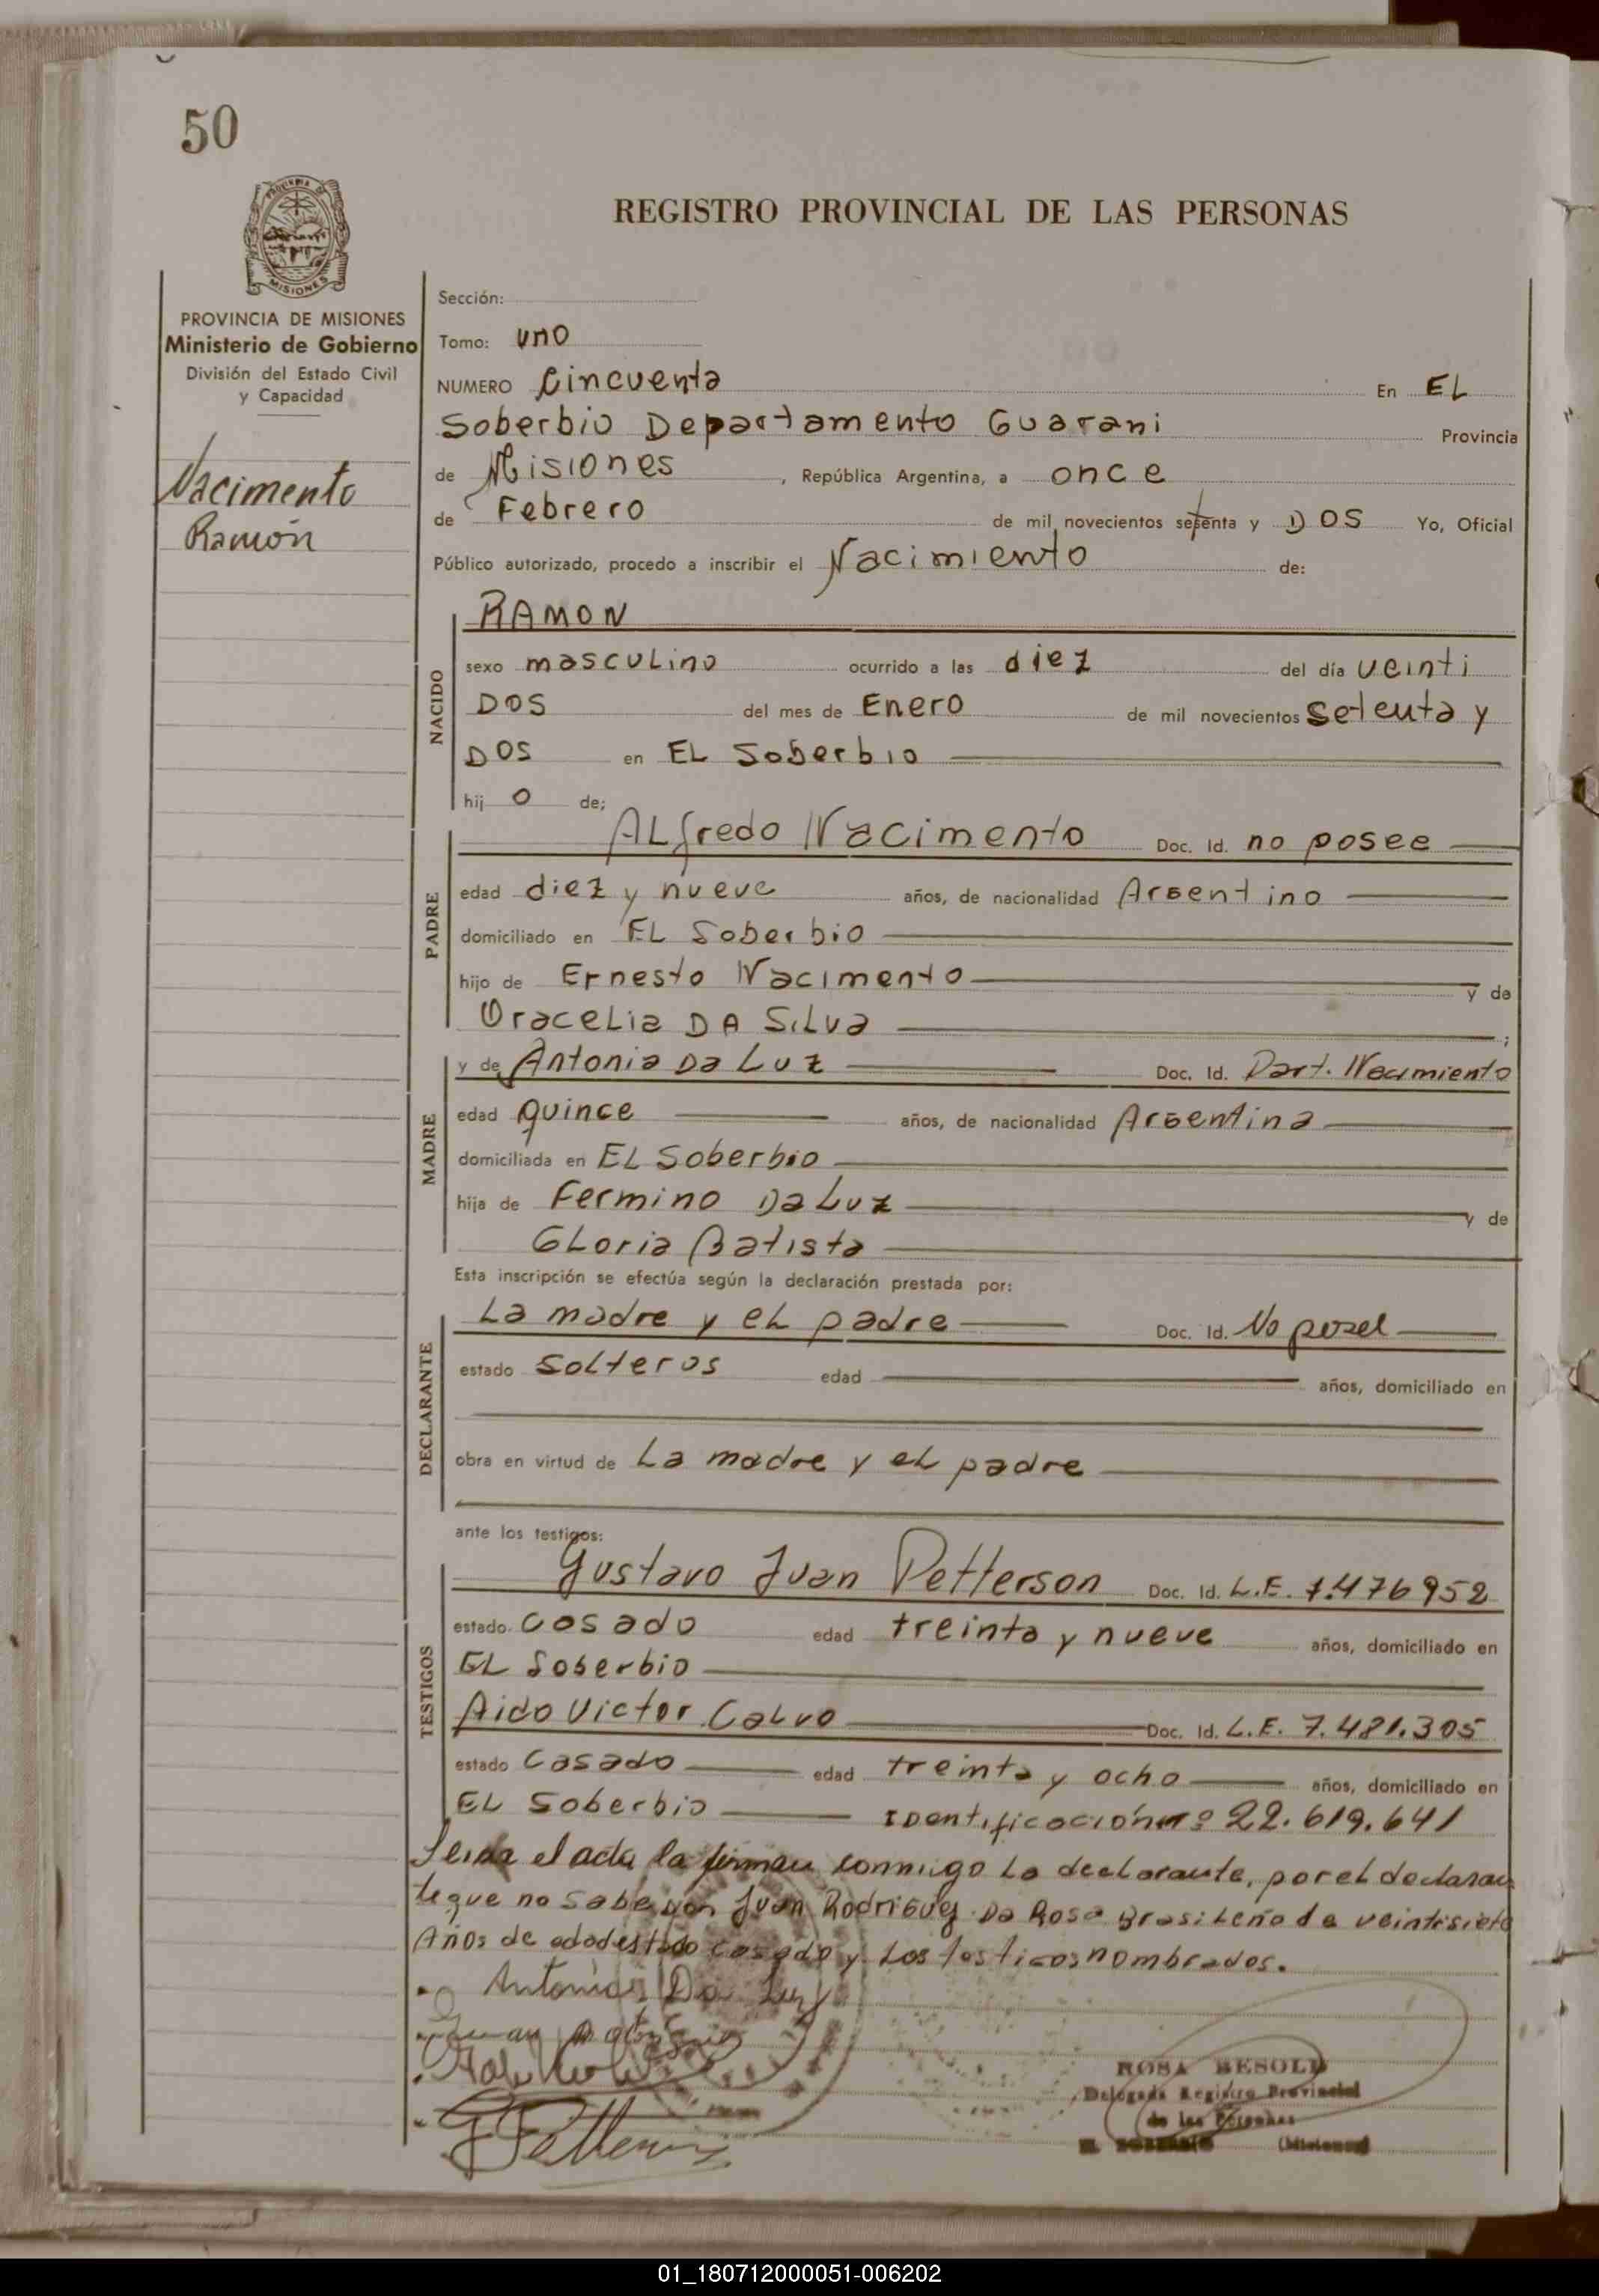 50
PROVINCIA DE MISIONES
Ministerio de Gobierno
División del Estado Civil
y Capacidad
Nacimento
Ramón
REGISTRO PROVINCIAL DE LAS PERSONAS
Sección:
Tomo: uno
NUMERO Cincuenta En EL
Soberbio Departamento Guarani Provincia
de Misiones , República Argentina, a once
de Febrero de mil novecientos setenta y DOS Yo, Oficial
Público autorizado, procedo a inscribir el Nacimiento de:
NACIDO
RAMON
sexo masculino ocurrido a las diez del día veinti
DOS del mes de Enero de mil novecientos setenta y
DOS en EL Soberbio
hij o de;
PADRE
ALfredo Nacimento Doc. Id. no posee
edad diez y nueve años, de nacionalidad Argentino
domiciliado en EL Soberbio
hijo de Ernesto Nacimento y de
Oracelia DA Silva ;
MADRE
y de Antonia Da Luz Doc. Id. Part. Nacimiento
edad quince años, de nacionalidad Argentina
domiciliada en EL Soberbio
hija de Fermino Da Luz y de
Gloria Batista
Esta inscripción se efectúa según la declaración prestada por:
DECLARANTE
La madre y el padre Doc. Id. No poseel
estado Solteros edad años, domiciliado en
obra en virtud de La madre y el padre
ante los testigos:
TESTIGOS
Gustavo Juan Petterson Doc. Id. L.E. 7.476952
estado casado edad treinta y nueve años, domiciliado en
EL Soberbio
Aido Victor Calvo Doc. Id. L.E. 7.481.305
estado Casado edad treinta y ocho años, domiciliado en
EL Soberbio Identificación nº 22.619.641
Leida el acta la firman conmigo La declarante, por el declaran
te que no sabe Juan Rodriguez Da Rosa Brasileño de veintisiete
Años de edad estado casado y Los testigos nombrados.
Antonia Da Luz
G Petterson
ROSA BESOLD
Delegada Registro Provincial
de las Personas
EL SOBERBIO (Misiones)
01_180712000051-006202